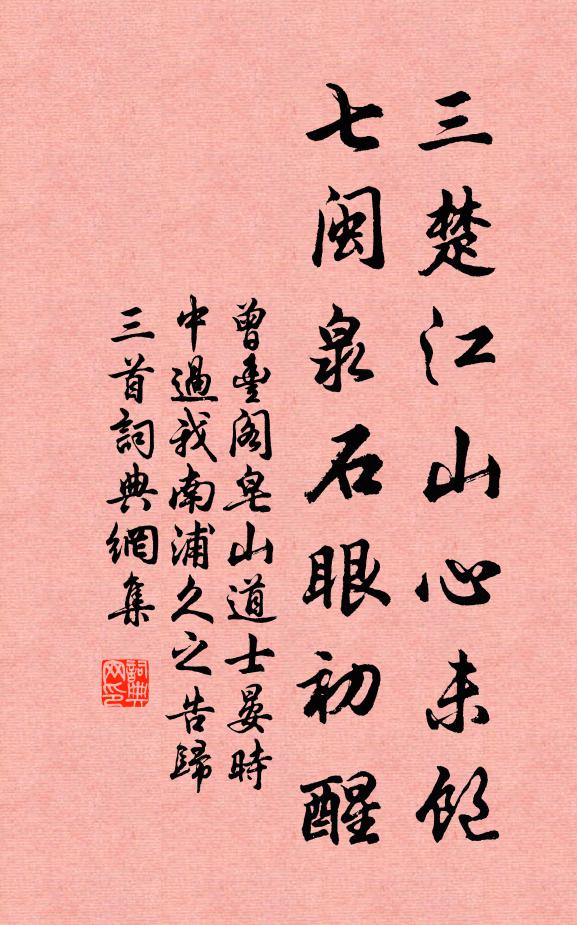 三楚江山心未饱
七闽泉石眼初醒
曾豐閣皂山道士晏時
中過我南浦久之告歸
三首詞典網集
詞典
网印